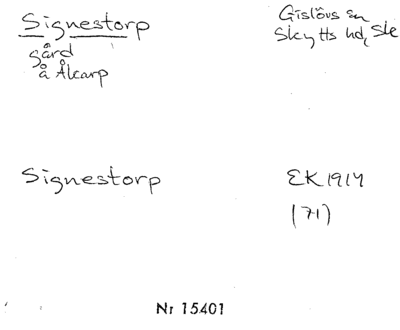 Signestorp
gård
å Ålcarp
Gislövs sn
Skytts hd, Ske
Signestorp
EK 1914
(71)
Nr 15401